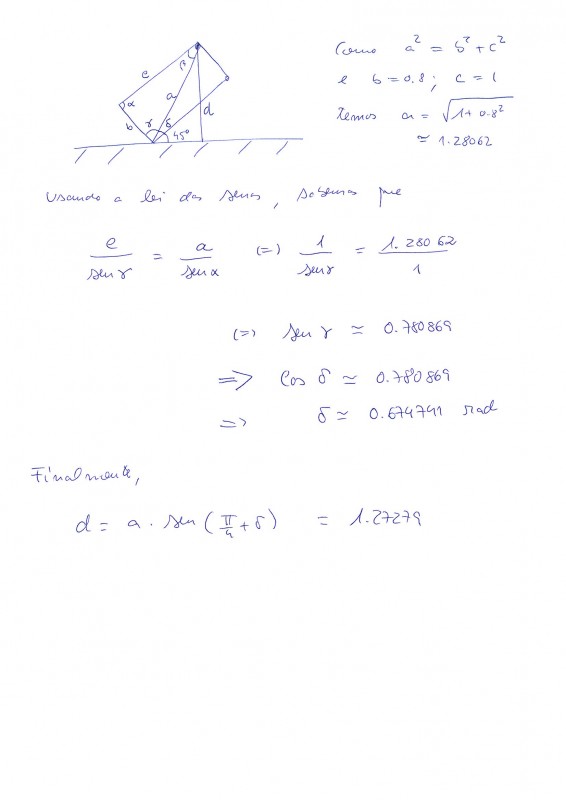 β
c
a
α
b
γ
δ
45°
d
Como a² = b² + c²
e b = 0.8 ; c = 1
temos a = √1 + 0.8²
≈ 1.28062
Usando a lei dos senos, sabemos que
c / sen γ = a / sen α (=) 1 / sen γ = 1.28062 / 1
(=) sen γ ≃ 0.780869
=> cos δ ≃ 0.780869
=> δ ≃ 0.674741 rad
Finalmente,
d = a . sen (π/4 + δ) = 1.27279